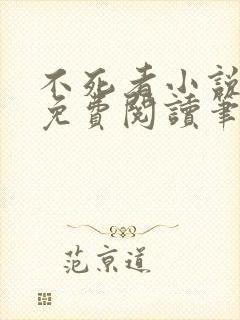 不死者小説
免費閱讀筆
范京道